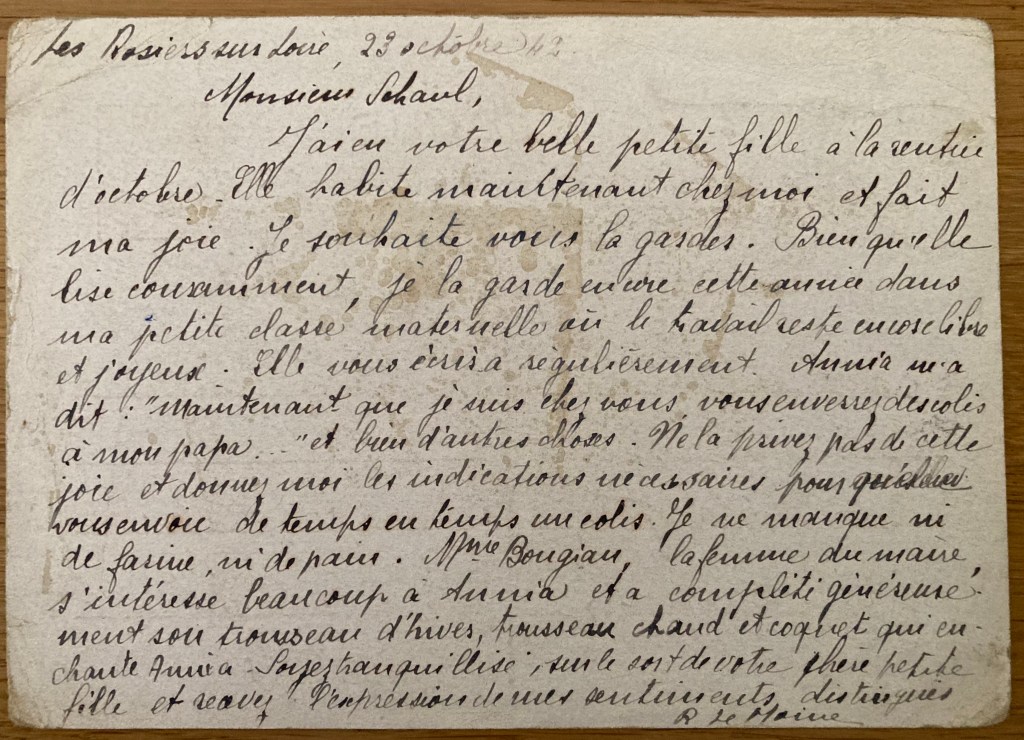 Les Rosiers sur Loire, 23 octobre 42
Monsieur Schaul,
J'ai eu votre belle petite fille à la rentrée
d'octobre. Elle habite maintenant chez moi et fait
ma joie. Je souhaite vous la garder. Bien qu'elle
lise couramment, je la garde encore cette année dans
ma petite classe maternelle où le travail reste encore libre
et joyeux. Elle vous écrira régulièrement. Annia m'a
dit : "Maintenant que je suis chez vous, vous enverrez des colis
à mon papa...." et bien d'autres choses. Ne la privez pas de cette
joie et donnez moi les indications nécessaires pour qu'elle
vous envoie de temps en temps un colis. Je ne manque ni
de farine, ni de pain. Mme Bougian, la femme du maire,
s'intéresse beaucoup à Annia et a complété généreuse-
ment son trousseau d'hiver, trousseau chaud et coquet qui en-
chante Annia. Soyez tranquillisé, sur le sort de votre chère petite
fille et recevez l'expression de mes sentiments distingués
R. Le Moine